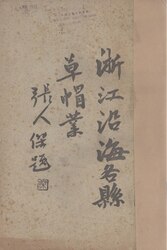 浙江沿海各縣
草帽業
張人傑題